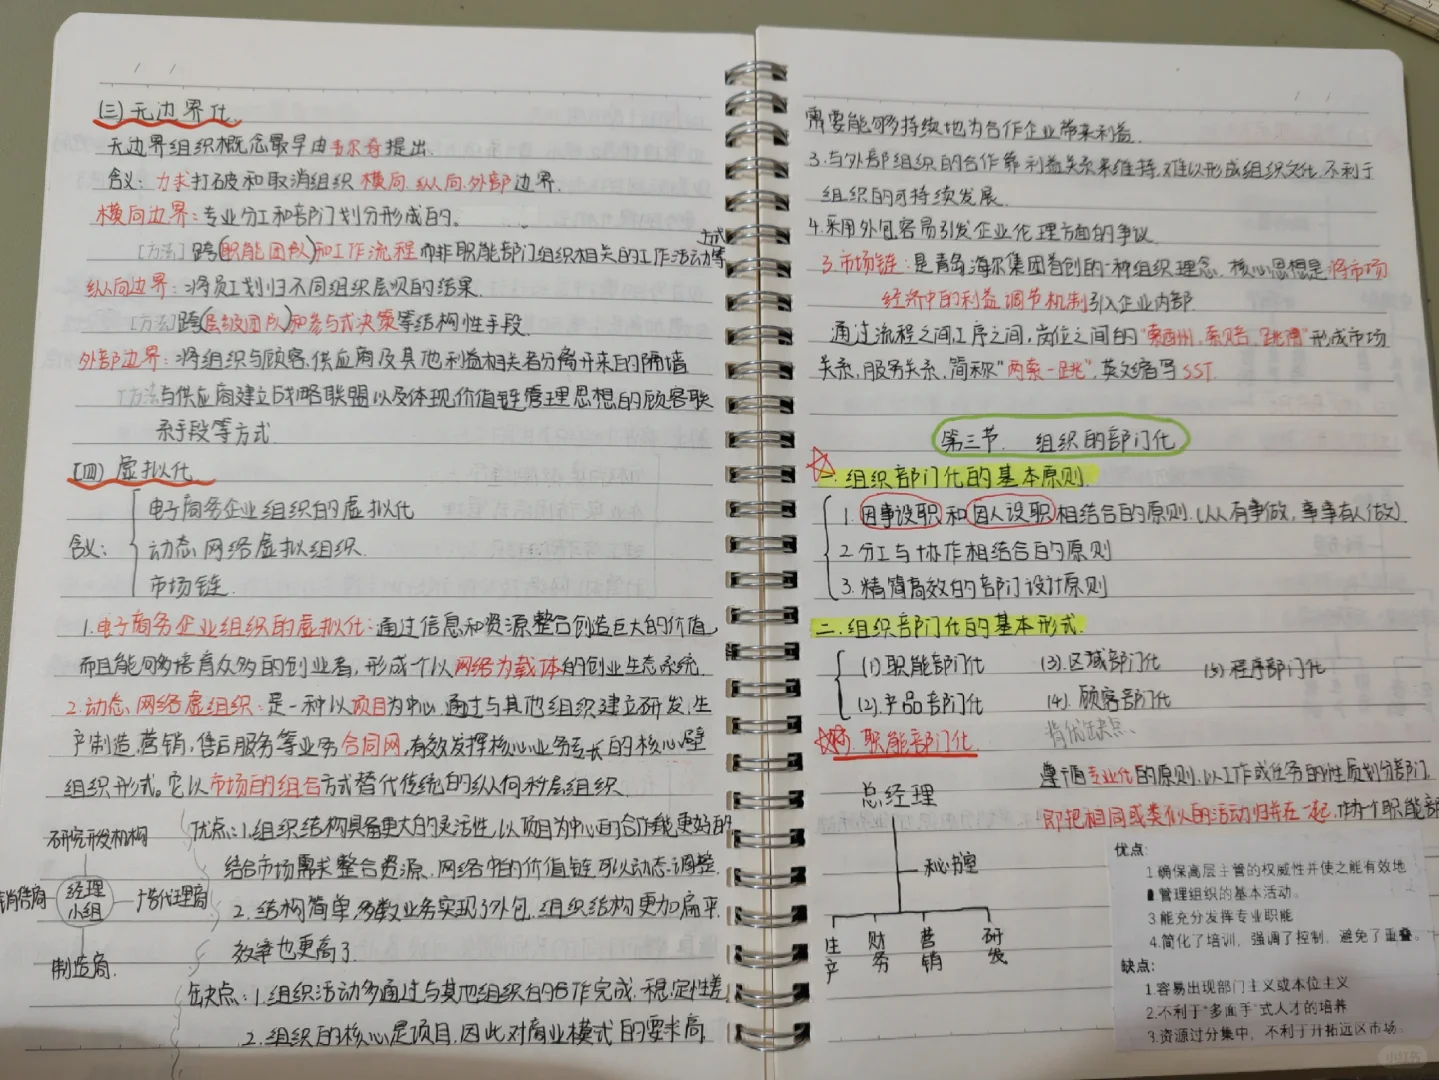 (三)无边界化
无边界组织概念最早由韦尔奇提出.
含义:力求打破和取消组织横向.纵向.外部边界.
横向边界:专业分工和部门划分形成的。
[方法]跨(职能团队)和工作流程而非职能部门组织相关的工作活动等方式
纵向边界:将员工划归不同组织层级的结果.
[方法]跨(层级团队)和参与式决策等结构性手段.
外部边界:将组织与顾客.供应商及其他利益相关者分离开来的隔墙
[方法]与供应商建立战略联盟以及体现价值链管理思想的顾客联
系手段等方式
(四)虚拟化
含义:
电子商务企业组织的虚拟化
动态网络虚拟组织.
市场链.
1.电子商务企业组织的虚拟化:通过信息和资源整合创造巨大的价值,
而且能够培育众多的创业者,形成个以网络为载体的创业生态系统.
2.动态网络虚组织:是一种以项目为中心,通过与其他组织建立研发.生
产制造.营销,售后服务等业务合同网,有效发挥核心业务专长的核心
组织形式。它以市场的组合方式替代传统的纵向科层组织.
研究开发机构
销售商
经理小组
广告代理商
制造商.
优点:1.组织结构具备更大的灵活性,以项目为中心的合作能更好的
结合市场需求整合资源.网络中的价值链可以动态调整.
2.结构简单,多数业务实现了外包.组织结构更加扁平.
效率也更高了.
缺点:1.组织活动多通过与其他组织的合作完成.稳定性差.
2.组织的核心是项目,因此对商业模式的要求高
需要能够持续地为合作企业带来利益.
3.与外部组织的合作靠利益关系来维持,难以形成组织文化,不利于
组织的可持续发展.
4.采用外包容易引发企业伦理方面的争议.
3.市场链:是青岛海尔集团首创的一种组织理念.核心思想是将市场
经济中的利益调节机制引入企业内部.
通过流程之间,工序之间,岗位之间的"索酬,索赔、跳闸"形成市场
关系,服务关系,简称"两索一跳",英文缩写SST.
第三节. 组织的部门化
一.组织部门化的基本原则.
1.因事设职和因人设职相结合的原则.(人人有事做,事事有人做)
2.分工与协作相结合的原则
3.精简高效的部门设计原则
二.组织部门化的基本形式.
(1)职能部门化 (3).区域部门化 (5)程序部门化
(2).产品部门化 (4).顾客部门化
背优缺点.
职能部门化.
遵循专业化的原则,以工作或任务的性质划分部门.
即把相同或类似的活动归并在一起,作为一个职能部
总经理
秘书室
生产 财务 营销 研发
优点:
1.确保高层主管的权威性并使之能有效地
管理组织的基本活动。
3.能充分发挥专业职能
4.简化了培训,强调了控制,避免了重叠。
缺点:
1.容易出现部门主义或本位主义
2.不利于"多面手"式人才的培养
3.资源过分集中,不利于开拓远区市场。
小红书